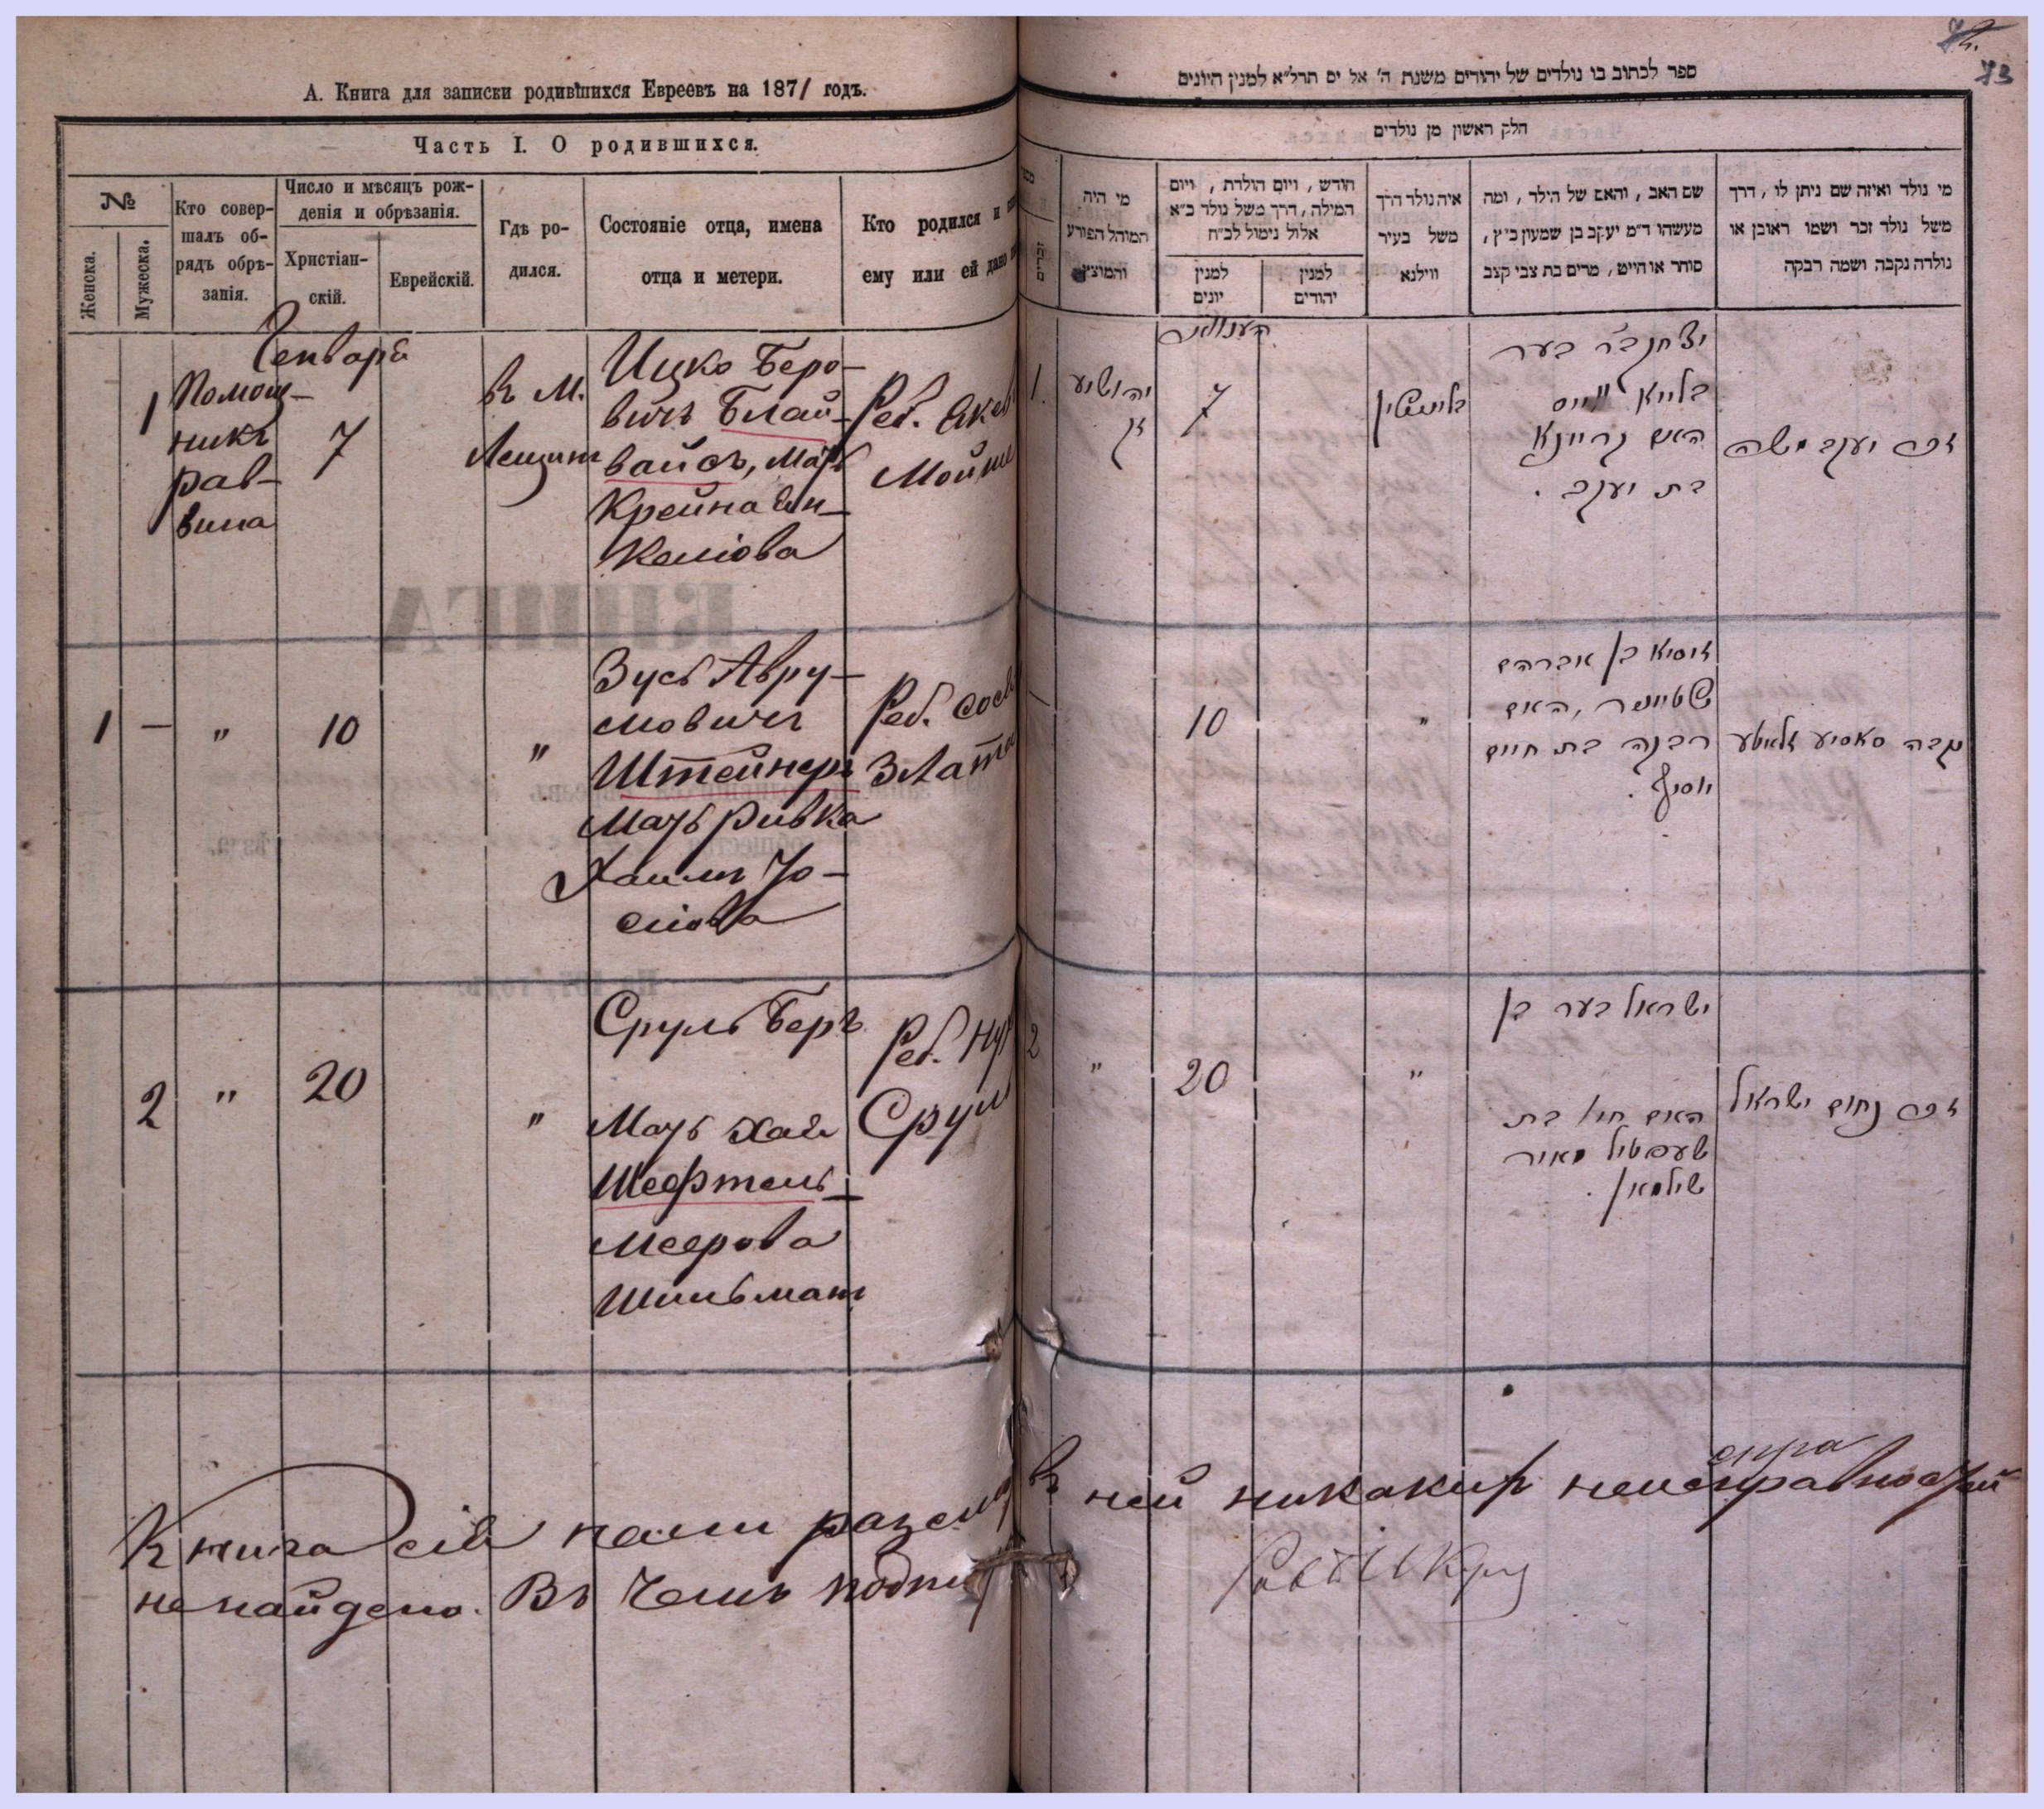 А. Книга для записки родившихся Евреевъ на 1871 годъ.
Часть I. О родившихся.
№
Женска.
Мужеска.
Кто совер-
шалъ об-
рядъ обрѣ-
занія.
Число и мѣсяцъ рож-
денія и обрѣзанія.
Христіан-
скій.
Еврейскій.
Гдѣ ро-
дился.
Состояніе отца, имена
отца и метери.
Кто родился и
ему или ей дано
Генваря
1
Помощ-
никъ
рав-
вина
7
въ М.
Ицко Беро-
вичъ Блай-
вайсъ, Мать
Крейна Ян-
келіова
Реб.
Мой
1
—
"
10
"
Зусь Авру-
мовичъ
Штейнеръ
Мать Ривка
Хаимъ Іо-
сіова
Реб.
Злата
2
"
20
"
Сруль Беръ
Мать Хая
Шефтель-
Меерова
Шильманъ
Реб.
Сруль
Книга сія нами разсмо
не найдено. Въ чемъ подпи
73
ספר לכתוב בו נולדים של יהודים משנת ה' אל ים תרל״א למנין היונים
חלק ראשון מן נולדים
מי היה
המוהל הפורע
והמוצץ
חודש, ויום הולדת, ויום
המילה, דרך משל נולד כ״א
אלול נימול לכ״ח
למנין
יונים
למנין
יהודים
איה נולד דרך
משל בעיר
ווילנא
שם האב, והאם של הילד, ומה
מעשהו ד״מ יעקב בן שמעון כ״ץ,
סוחר או חייט, מרים בת צבי קצב
מי נולד ואיזה שם ניתן לו, דרך
משל נולד זכר ושמו ראובן או
נולדה נקבה ושמה רבקה
1.
יהושיע
7
בער
האם קריינא
בת יעקב.
זכר יעקב משה
10
"
זוסיא בן אברהם
שטיינער, האם
רבקה בת חיים
יוסף.
נקבה סאסיע זלאטע
2
"
20
"
ישראל בער בן
האם חי' בת
שעפטיל מאיר
שילמאן.
זכר נחום ישראל
въ ней никакихъ неисправностей